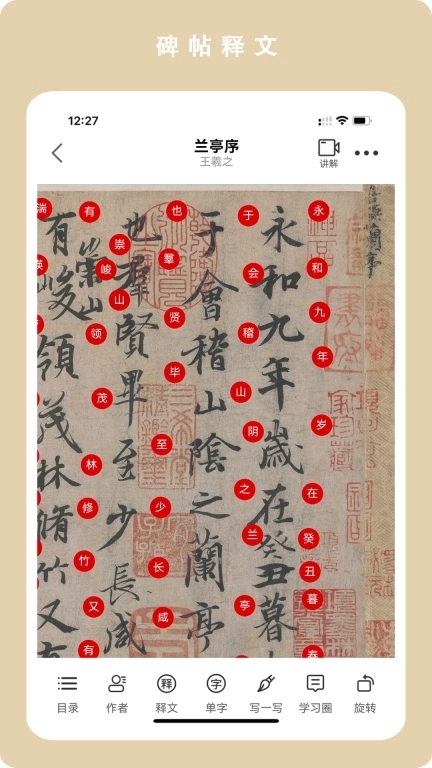 碑帖释文
12:27
兰亭序
王羲之
讲解
永和九年歲在癸丑暮
于會稽山陰之蘭亭
也羣賢畢至少長咸
有崇山峻領茂林脩竹又有
永和九年岁在癸丑暮春
于会稽山阴之兰亭
也羣贤毕至少长咸
有崇山峻领茂林修竹又有
湍
目录
作者
释 释文
字 单字
写一写
学习圈
旋转